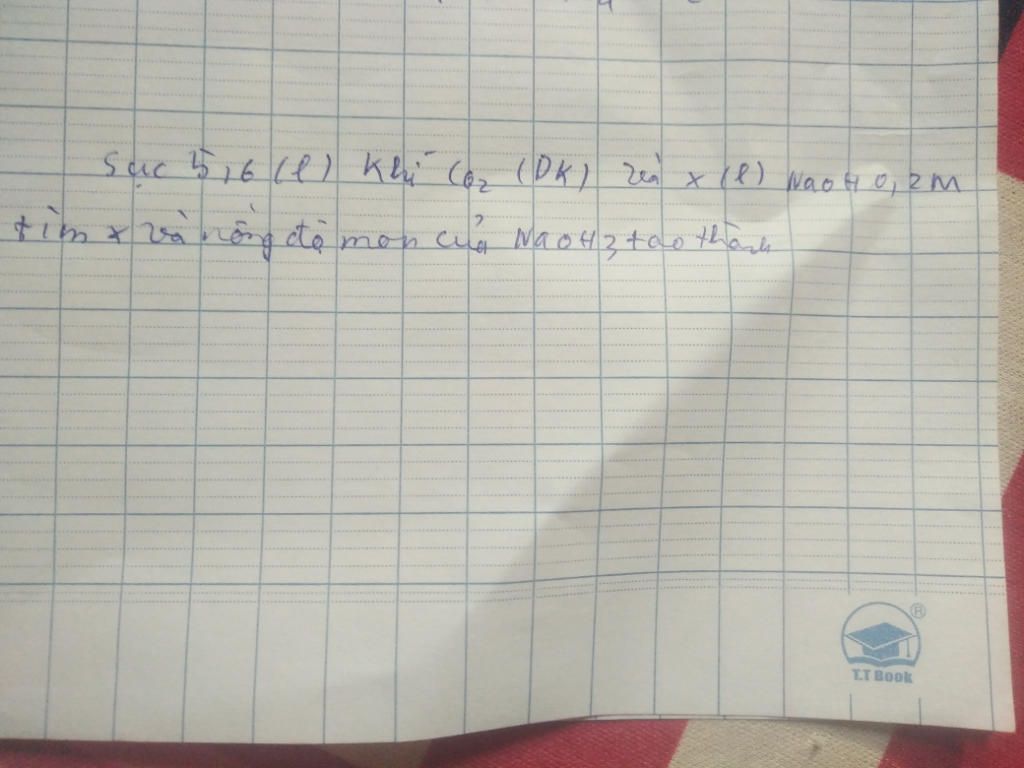 Sục 5,6 (l) khí CO2 (ĐK) và x (l) NaOH 0,2M
tìm x và nồng độ mon của NaOH3 tạo thành
®
T.T Book